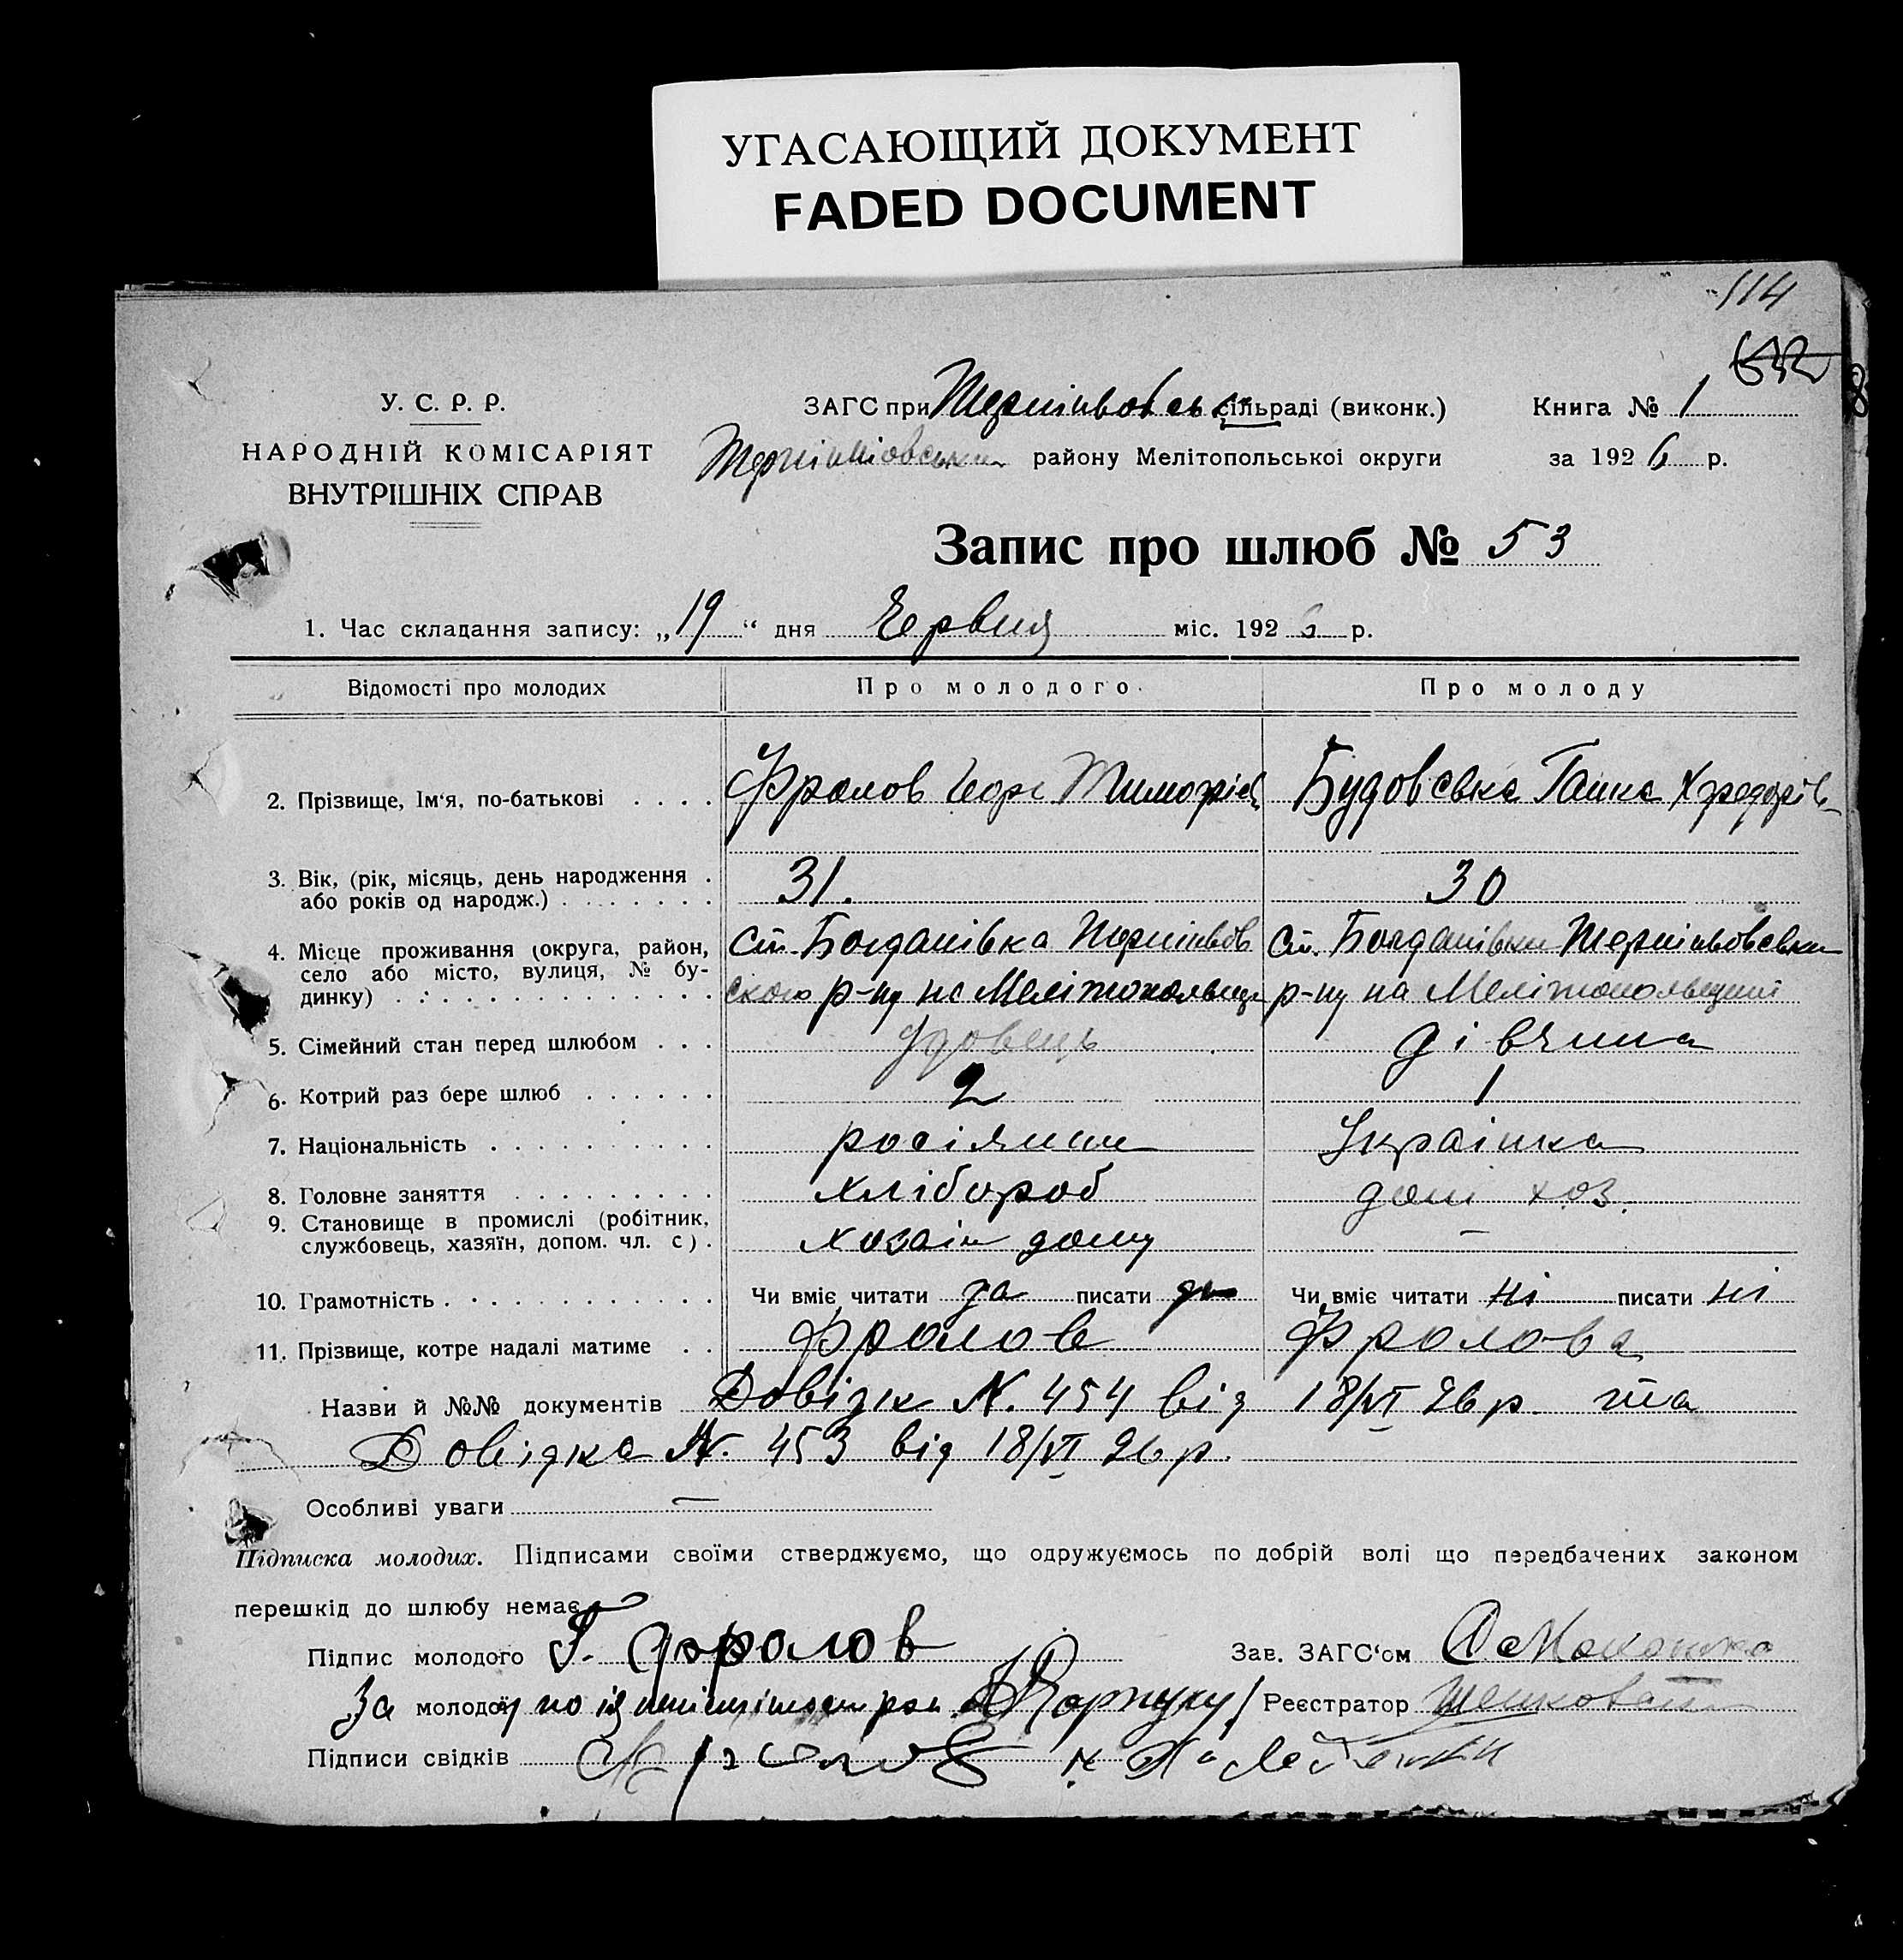 УГАСАЮЩИЙ ДОКУМЕНТ
FADED DOCUMENT
114
У. С. Р. Р.
НАРОДНІЙ КОМІСАРІЯТ
ВНУТРІШНІХ СПРАВ
ЗАГС при сільраді (виконк.)
району Мелітопольської округи
Книга № 1
за 1926 р.
Запис про шлюб № 53
1. Час складання запису: „19“ дня Червня міс. 1926 р.
Відомості про молодих
Про молодого.
Про молоду
2. Прізвище, Ім'я, по-батькові
Фролов
Ганна
3. Вік, (рік, місяць, день народження або років од народж.)
31.
30
4. Місце проживання (округа, район, село або місто, вулиця, № будинку)
Богданівка
р-ну на
Богданівки
р-ну на
5. Сімейний стан перед шлюбом
Удовець
дівчина
6. Котрий раз бере шлюб
2
1
7. Національність
росіянин
Українка
8. Головне заняття
хлібороб
дом хоз.
9. Становище в промислі (робітник, службовець, хазяїн, допом. чл. с).
хозаін дому
—
10. Грамотність
Чи вміє читати да писати да
Чи вміє читати ні писати ні
11. Прізвище, котре надалі матиме
Фролов
Фролова
Назви й №№ документів Довідк N. 454 від 18/VI 26 р. та
Довідка N. 453 від 18/VI 26 р.
Особливі уваги —
Підписка молодих. Підписами своїми стверджуємо, що одружуємось по добрій волі що передбачених законом
перешкід до шлюбу немає
Підпис молодого Г. Фролов
Зав. ЗАГС'ом
За молодої
Реєстратор
Підписи свідків